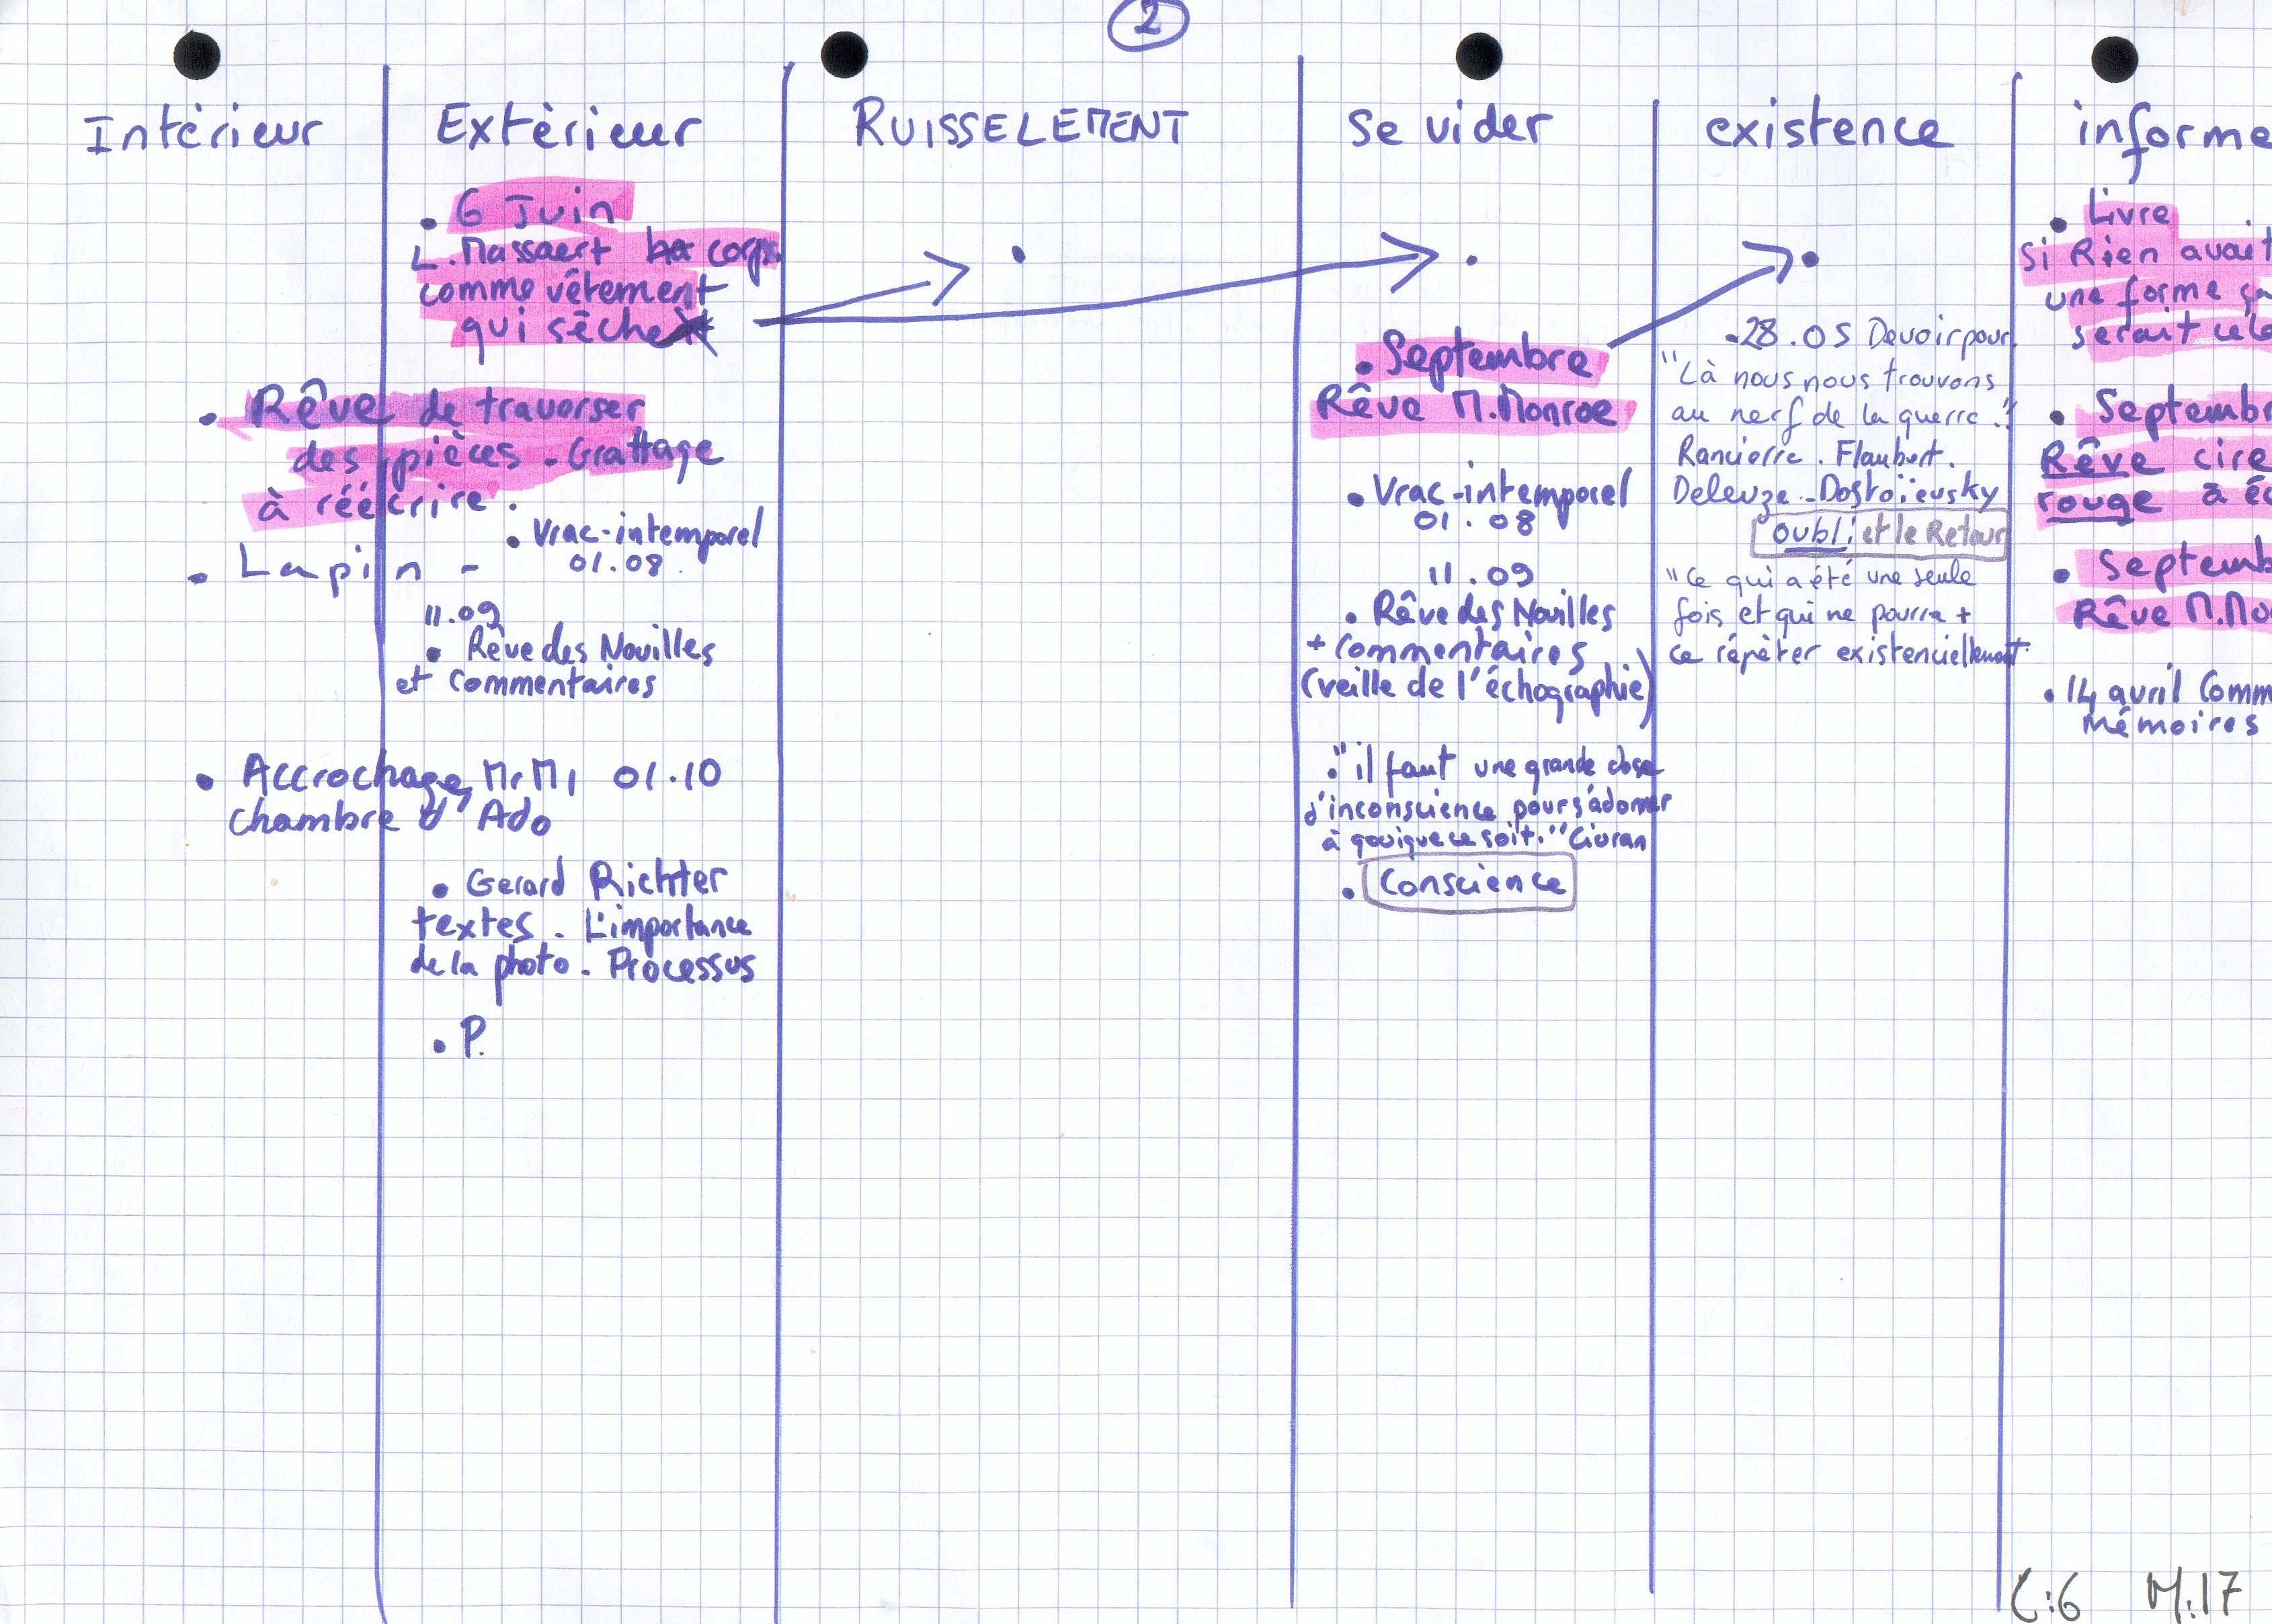 2
Intérieur
Extèrieur
RUISSELEMENT
Se vider
existence
informe
• 6 Juin
L. Massaert corps
comme vêtement
qui sèche
• Rêve de traverser
des pièces - Grattage
à réécrire.
• Vrac-intemporel
01.08
• Lapin -
11.09
• Rêve des Nouilles
et commentaires
• Accrochage Mr M1 01.10
chambre d'Ado
• Gerard Richter
textes - L'importance
de la photo - Processus
• P.
• Septembre
Rêve M.Monroe
• Vrac-intemporel
01.08
11.09
• Rêve des Nouilles
+ commentaires
(veille de l'échographie)
• "il faut une grande dose
d'inconscience pour s'adonner
à quoique ce soit." Cioran
• Conscience
-28.05 Devoir pour
"Là nous nous trouvons
au nerf de la guerre."
Ranciere. Flaubert.
Deleuze - Dostoïevsky
oubli et le Retour
"Ce qui a été une seule
fois et qui ne pourra +
ce répèter existenciellement
• Livre
Si Rien avait
une forme ça
serait cela
• Septembr
Rêve cire
rouge à éc
• Septemb
Rêve M.Mo
• 14 avril Comm
mémoires
C:6 M:17